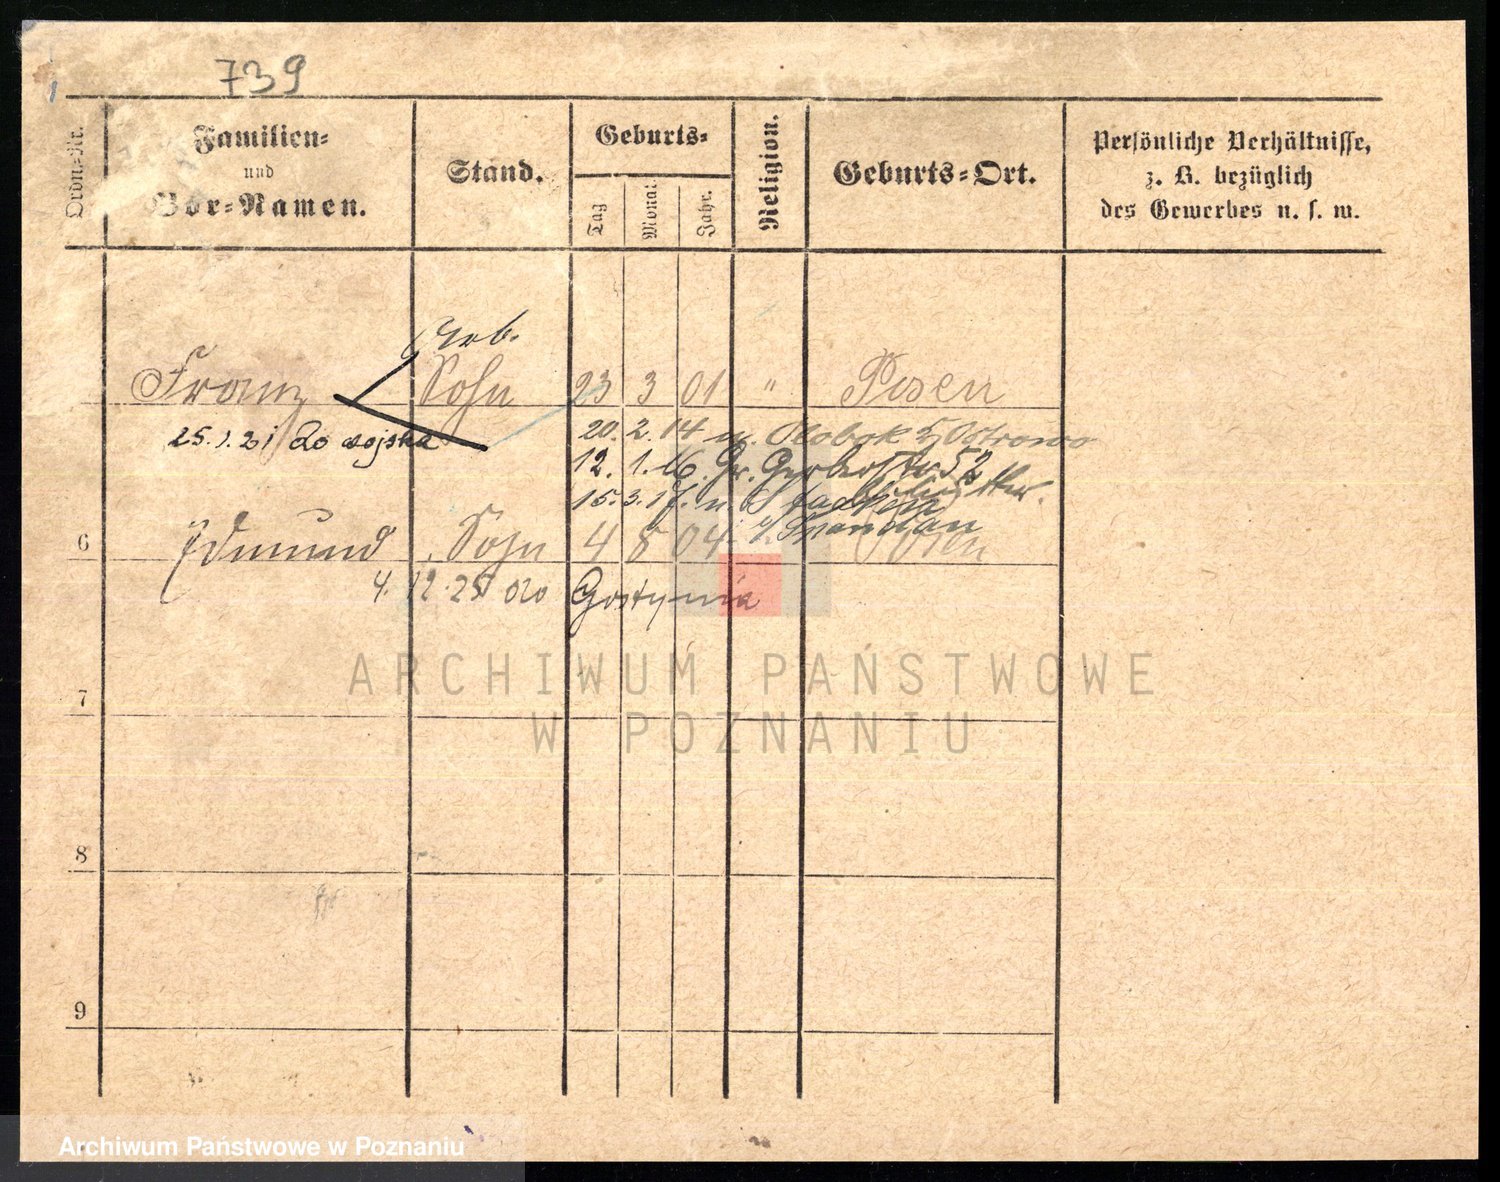 739
Ordn.-Nr.
Familien-
und
Vor-Namen.
Stand.
Geburts-
Tag
Monat
Jahr.
Religion.
Geburts-Ort.
Persönliche Verhältnisse,
z. B. bezüglich
des Gewerbes u. s. w.
Franz Sohn 23 3 01 " Posen
25.1.21 do wojska
20.2.14 n. Olobok Ostrowo
12.1.16. Gr. Gerberstr 52
15.3.17. n. Staaken
Spandau
6 Edmund Sohn 4 8 04 Posen
4.12.25 do Gostynia
7
8
9
ARCHIWUM PAŃSTWOWE
W POZNANIU
Archiwum Państwowe w Poznaniu